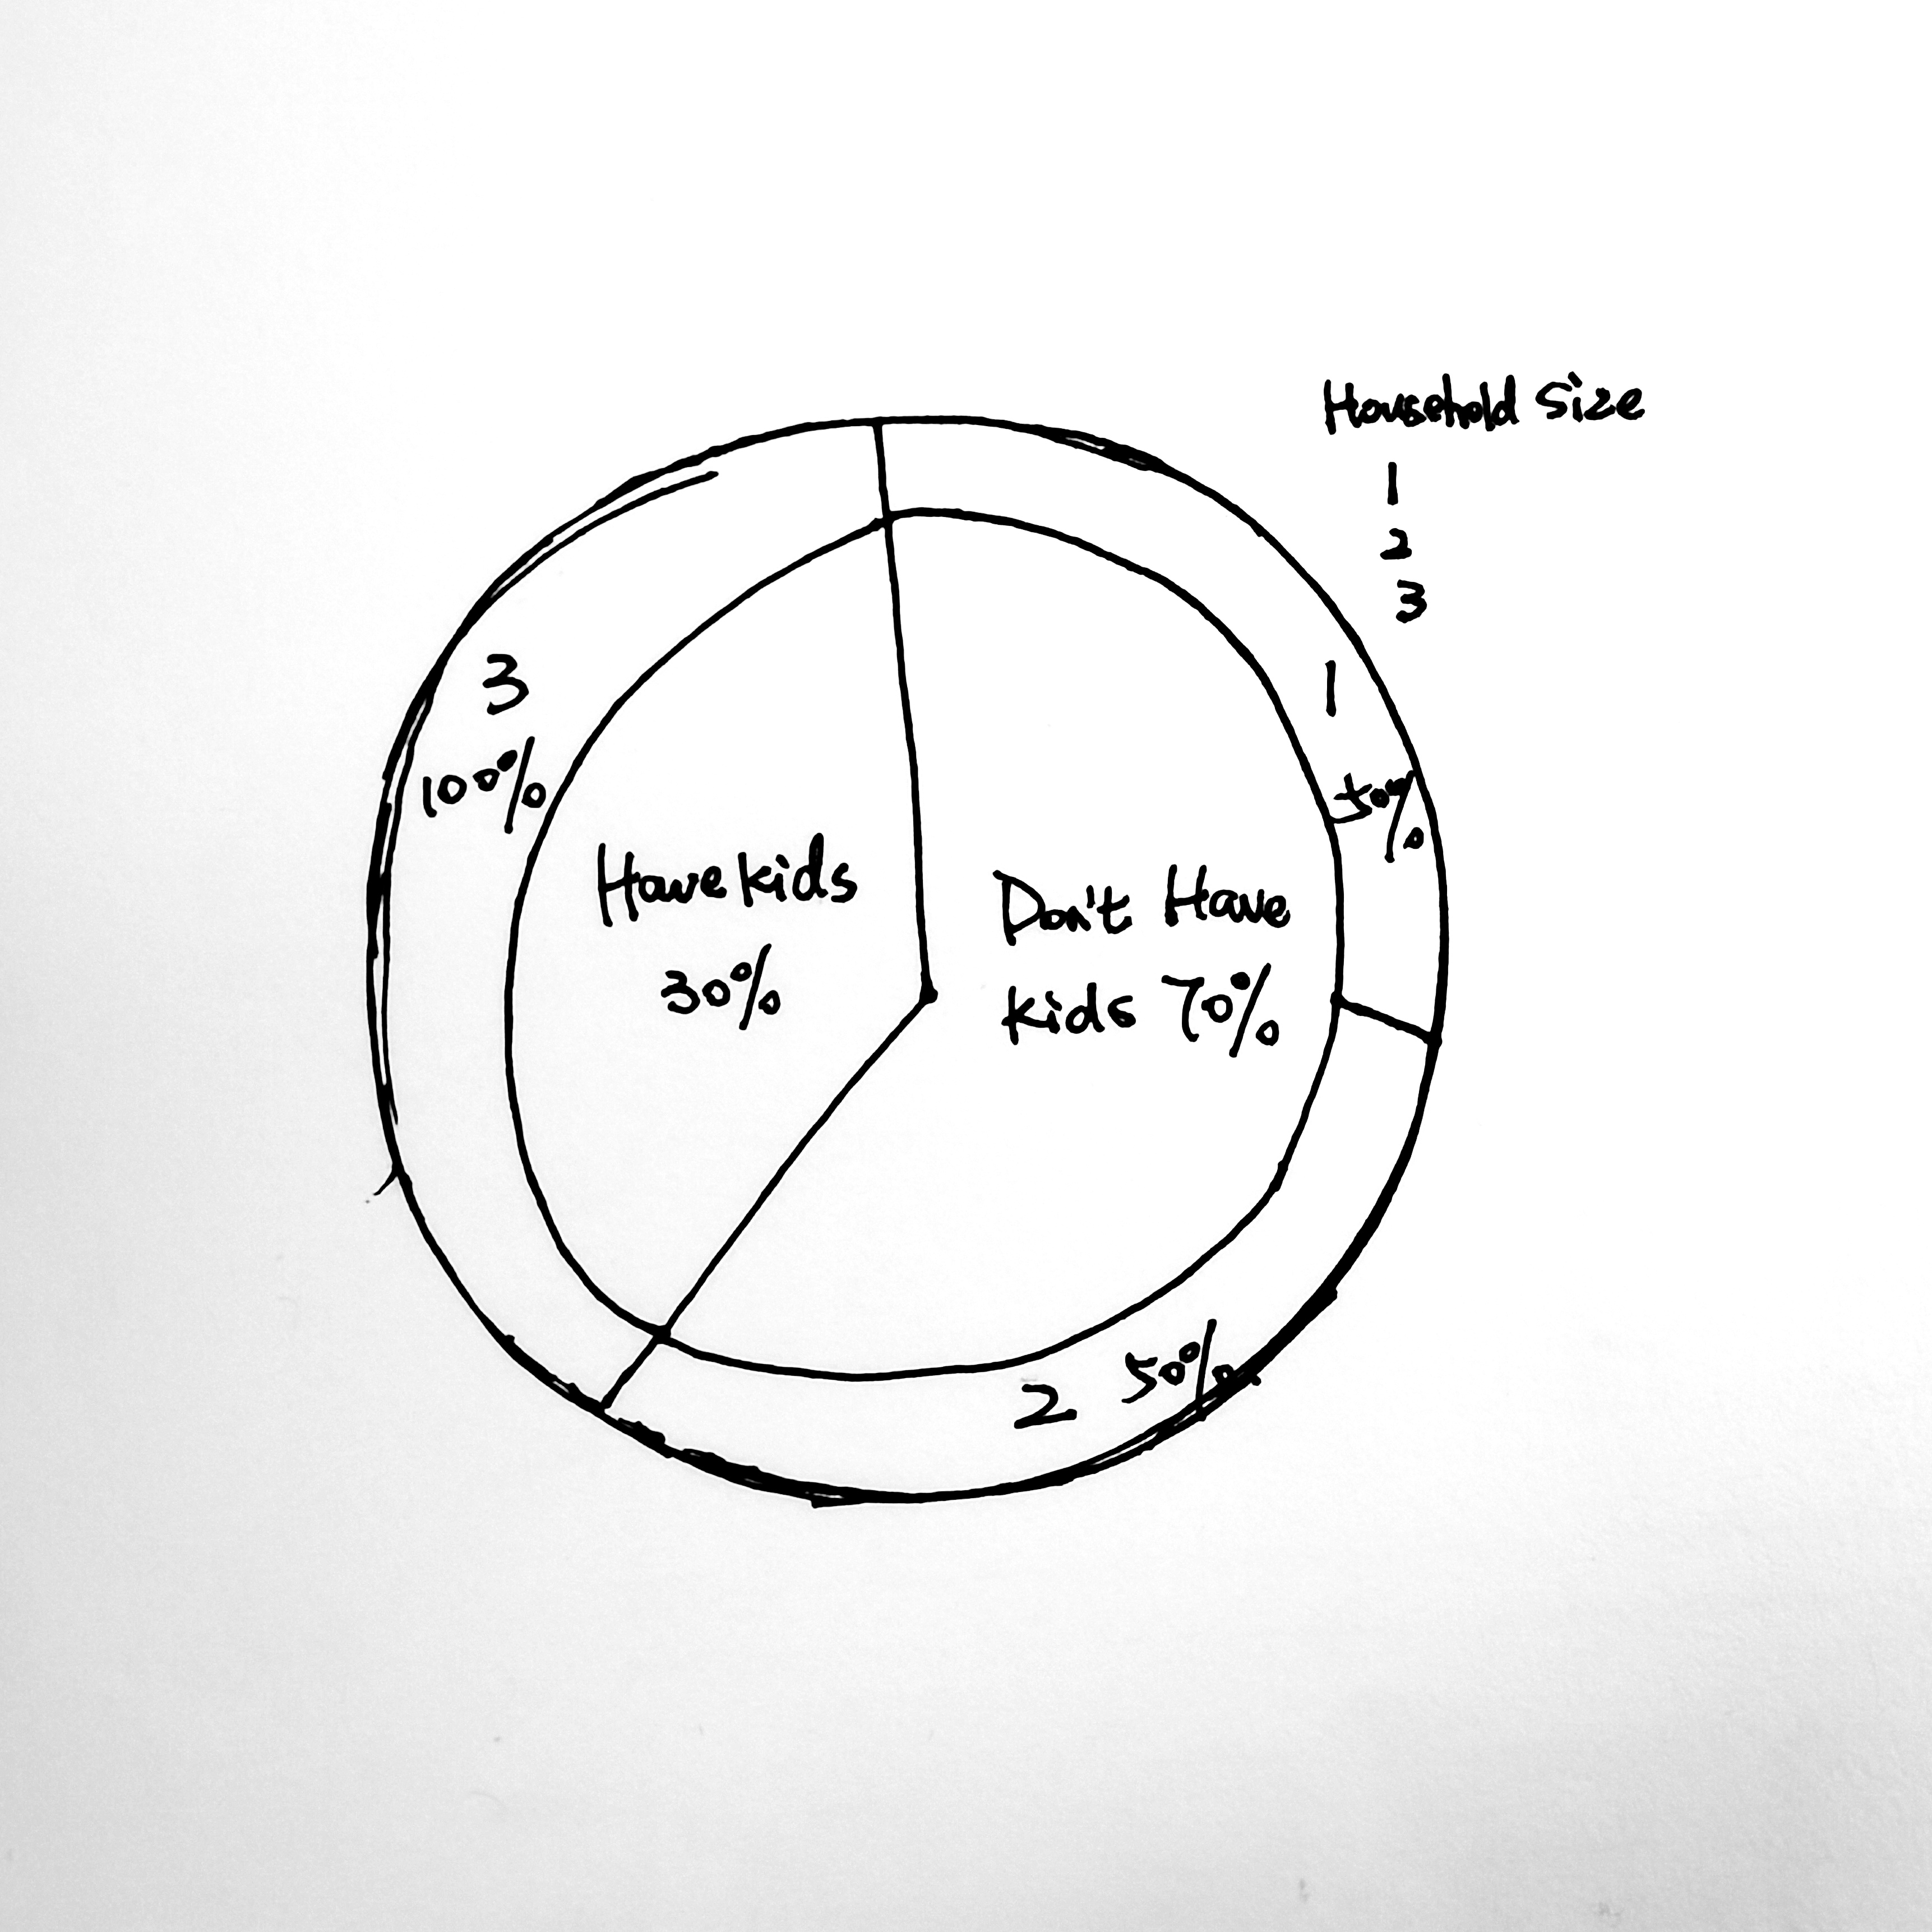 Household Size
1
2
3
3
100%
1
50%
Have kids
30%
Don't Have
kids 70%
2 50%